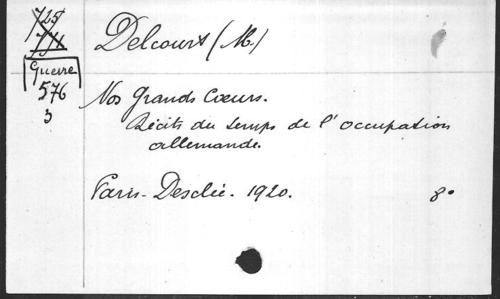 Delcourt (M.)
Guerre
576
3
Nos Grands Cœurs.
Récits du temps de l'occupation
allemande.
Paris - Desclée. 1920. 8°